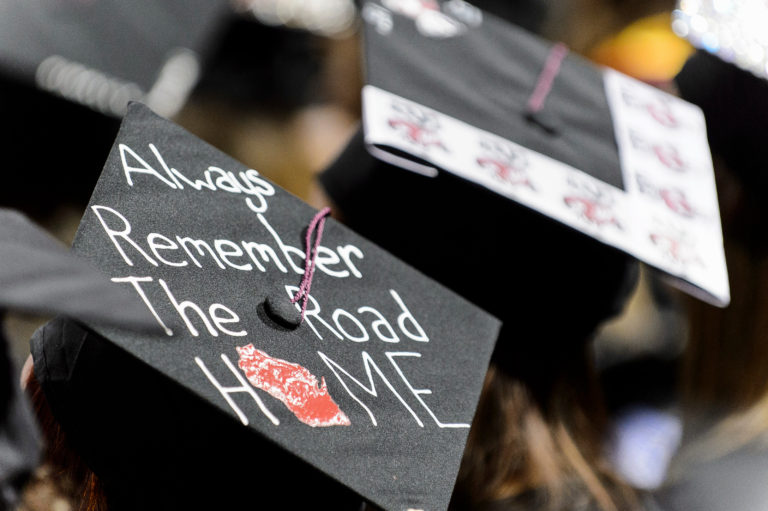 Always
Remember
The Road
HOME